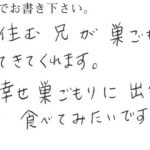 でお書き下さい。
住む 兄 が 巣ごも
てきてくれます。
幸せ 巣ごもりに 出
食べてみたいです